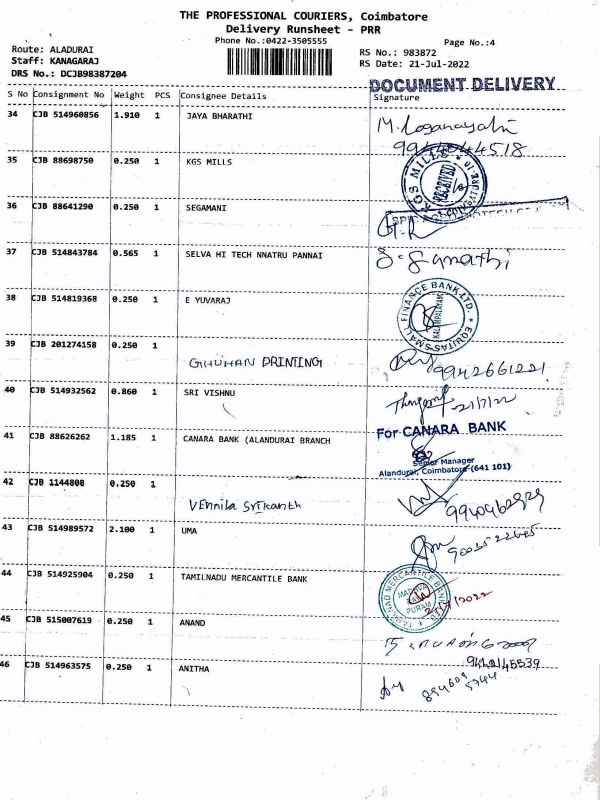 THE PROFESSIONAL COURIERS, Coimbatore
Delivery Runsheet - PRR
Phone No.:0422-3505555
Page No.:4
Route: ALADURAI
Staff: KANAGARAJ
DRS No.: DCJB98387204
RS No.: 983872
RS Date: 21-Jul-2022
DOCUMENT DELIVERY
S No Consignment No Weight PCS Consignee Details Signature
34 CJB 514960856 1.910 1 JAYA BHARATHI
9944044518
35 CJB 88698750 0.250 1 KGS MILLS
RECEIVED
36 CJB 88641290 0.250 1 SEGAMANI
37 CJB 514843784 0.565 1 SELVA HI TECH NNATRU PANNAI
38 CJB 514819368 0.250 1 E YUVARAJ
EQUITAS SMALL FINANCE BANK LTD.
39 CJB 201274158 0.250 1
GHUHAN PRINTING
9942661221
40 CJB 514932562 0.860 1 SRI VISHNU
21/7/22
41 CJB 88626262 1.185 1 CANARA BANK (ALANDURAI BRANCH
For CANARA BANK
Senior Manager
Alandurai, Coimbatore-(641 101)
42 CJB 1144808 0.250 1
Vennila Srikanth
43 CJB 514989572 2.100 1 UMA
44 CJB 514925904 0.250 1 TAMILNADU MERCANTILE BANK
TAMILNAD MERCANTILE BANK LTD.
21/7/2022
45 CJB 515007619 0.250 1 ANAND
46 CJB 514963575 0.250 1 ANITHA